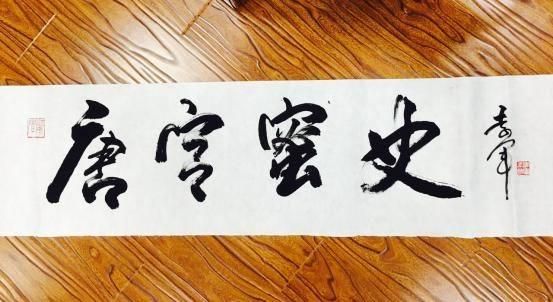 唐宫蜜史
军